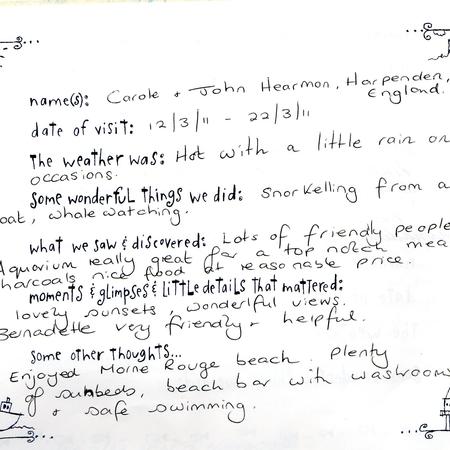 name(s): Carole + John Hearmon, Harpenden,
England.
date of visit: 12/3/11 - 22/3/11
the weather was: Hot with a little rain on
occasions.
some wonderful things we did: Snorkelling from a
oat, whale watching.
what we saw & discovered: Lots of friendly people
Aquarium really great for a top notch mea
harcoals nice food at reasonable price.
moments & glimpses & little details that mattered:
lovely sunsets, wonderlful views.
Bernadette very friendly + helpful.
some other thoughts...
Enjoyed Morne Rouge beach. Plenty
of sunbeds, beach bar with washrooms
+ safe swimming.